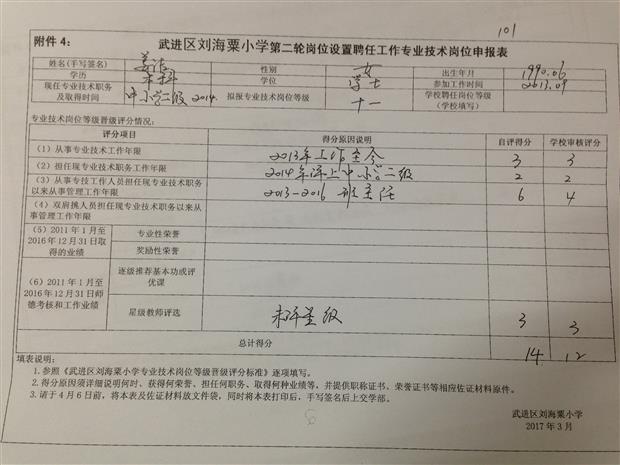 101
附件4： 武进区刘海粟小学第二轮岗位设置聘任工作专业技术岗位申报表
姓名(手写签名) 姜洁 性别 女 出生年月 1990.06
学历 本科 学位 学士 参加工作时间 2013.09
现任专业技术职务及取得时间 中小学二级 2014. 拟报专业技术岗位等级 十一 学校聘任岗位等级（学校填写）
专业技术岗位等级晋级评分情况：
评分项目 得分原因说明 自评得分 学校审核评分
（1）从事专业技术工作年限 2013年工作至今 3 3
（2）担任现专业技术职务工作年限 2014年评上中小学二级 2 2
（3）从事专技工作人员担任现专业技术职务
以来从事管理工作年限 2013-2016 班主任 6 4
（4）双肩挑人员担任现专业技术职务以来从
事管理工作年限
（5）2011年1月至
2016年12月31日取
得的业绩
专业性荣誉
奖励性荣誉
（6）2011年1月至
2016年12月31日师
德考核和工作业绩
逐级推荐基本功或评
优课
星级教师评选 未评星级 3 3
总计得分 14 12
填表说明：
1. 参照《武进区刘海粟小学专业技术岗位等级晋级评分标准》逐项填写。
2. 得分原因须详细说明何时、获得何荣誉、担任何职务、取得何种业绩等，并提供职称证书、荣誉证书等相应佐证材料原件。
3. 请于4月6日前，将本表及佐证材料放文件袋，同时将本表打印后，手写签名后上交学部。
武进区刘海粟小学
2017年3月